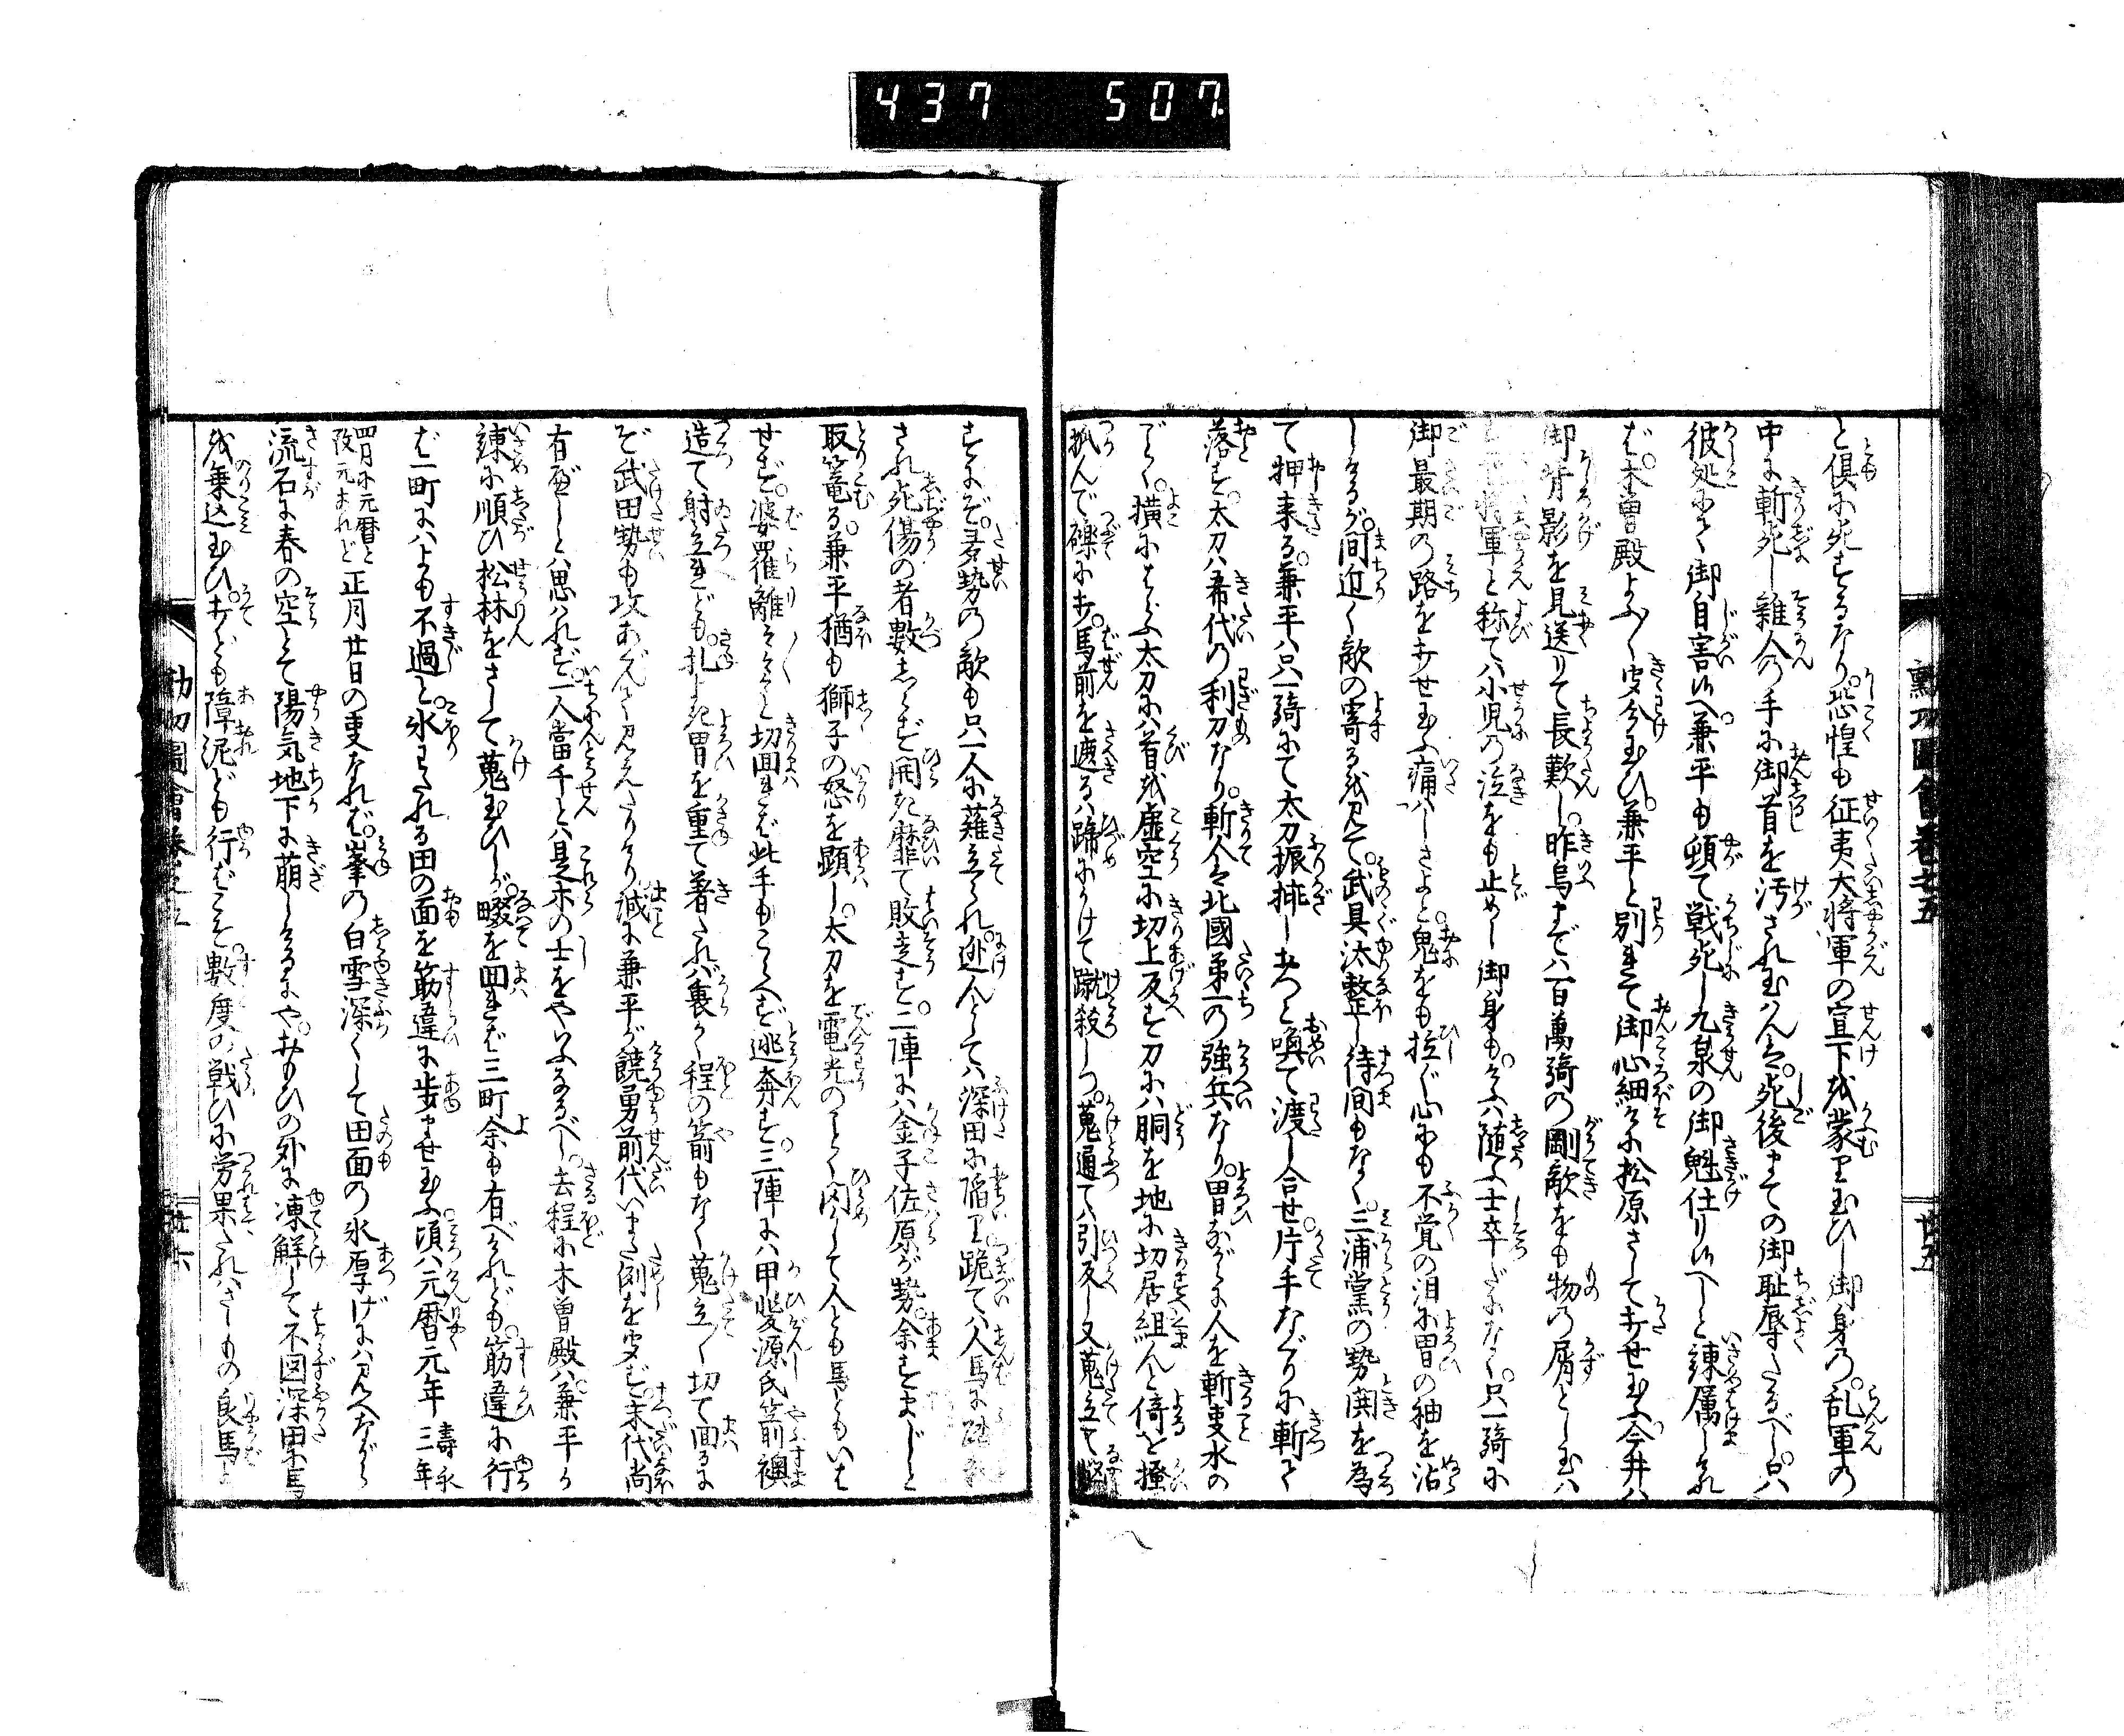 437 507
と倶に死するなり。恐惶も征夷大将軍の宣下を蒙り玉ひし御身の。乱軍の
中に斬死し雑人の手に御首を汚され玉はんは。死後までの御恥辱たるべし。只
彼処にて御自害候へ。兼平も頓て戦死し九泉の御魁仕り候へしと諫厲しけれ
ば。木曽殿よふ〱聞分玉ひ。兼平と別れて御心細げに松原さして打せ玉ふ。今井ハ
御背影を見送りて長歎し。昨烏までハ百萬騎の剛敵をも物の屑とし玉ハ
将軍と称てハ小児の泣をも止めし御身も。今ハ随ふ士卒だになく。只一騎に
御最期の路を打せ玉ふ痛ハしさよと。鬼をも拉ぐ心にも不覚の泪に冑の袖を沾
しけるが。間近く敵の寄るを見て。武具汰整し待間もなく。三浦党の勢鬨を為
て押来る。兼平ハ只一騎にて太刀振排しおつと喚て渡し合せ。片手なぐりに斬て
落す。太刀ハ希代の利刀なり。斬人は北國第一の強兵なり。冑ながらに人を斬事水の
でく。横にはらふ太刀にハ首を虚空に切上反す刀にハ胴を地に切居組んと倚を掻
抓んで礫に打。馬前を遮るハ蹄にかけて蹴殺しつ。蒐通てハ引反し又蒐立て
まにぞ。多勢の敵も只一人に薙立られ。迯んとてハ深田に陥り跪てハ人馬に踏
され死傷の者數しらず開き靡て敗走す。二陣にハ金子佐原が勢。余すまじと
取篭る。兼平猶も獅子の怒を顕し。太刀を電光のごとく閃して人とも馬ともいは
せず。婆羅離〻〻と切回れば此手もこらへず逃奔す。三陣にハ甲斐源氏箭襖
造て射立れども。札よき冑を重て着たれハ裏かく程の箭もなく蒐立〱切て回るに
ぞ武田勢も攻あぐんで見えたりけり。誠に兼平が驍勇前代いまだ例を聞ず。末代尚
有べしとハ思ハれず。一人當千とハ是ホの士をやいふなるべし。去程に木曽殿ハ。兼平が
諫に順ひ松林をさして蒐玉ひしが。畷を回れば三町余も有べけれども。筋違に行
ば一町にハよも不過と。氷わたれる田の面を筋違に歩ませ玉ふ。頃ハ元暦元年 壽永三年
四月に元暦と改元あれど 正月廿日の事なれば。峯の白雪深くして田面の氷厚げにハ見へながら
流石に春の空とて陽気地下に萌しけるにや。おもひの外に凍鮮して不図深田に馬
を乗込玉ひ。打ども障泥ども行ばこそ。數度の戦ひに労果たれハさしもの良馬も